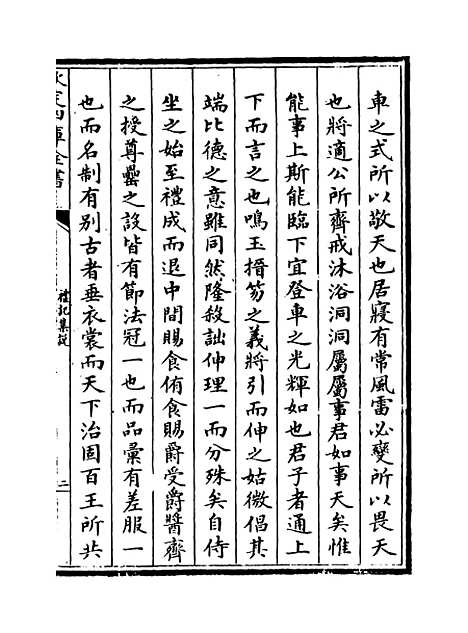 車之式所以敬天也居寢有常風雷必變所以畏天
也將適公所齊戒沐浴洞洞屬屬事君如事天矣惟
能事上斯能臨下宜登車之光輝如也君子者通上
下而言之也鳴玉搢笏之義將引而伸之姑微倡其
端比德之意雖同然隆殺詘伸理一而分殊矣自侍
坐之始至禮成而退中間賜食侑食賜爵受爵醬齊
之授尊罍之設皆有節法冠一也而品彚有差服一
也而名制有別古者垂衣裳而天下治固百王所共
欽定四庫全書
禮記集說
二